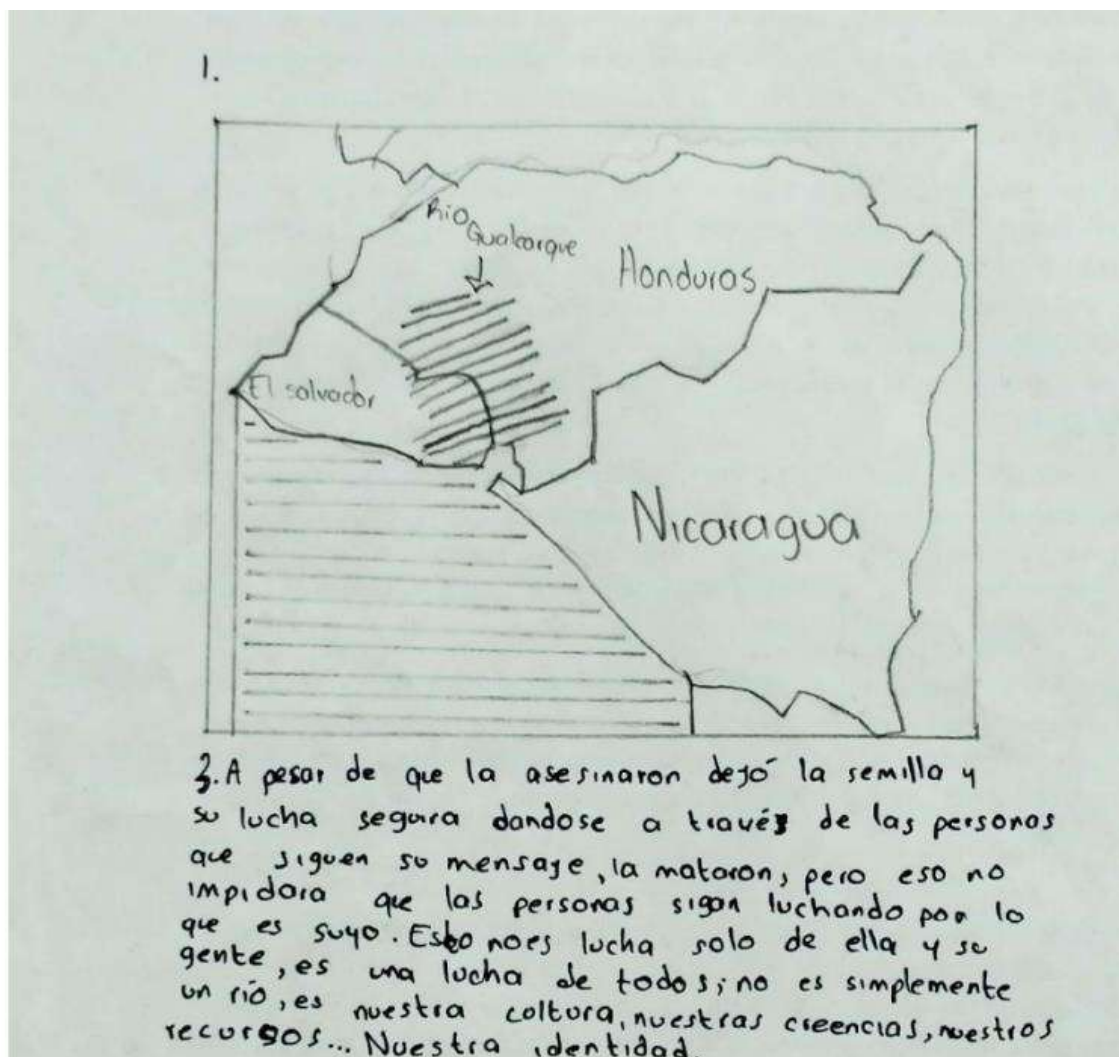 1.
Río
Gualcarque
Honduras
El salvador
Nicaragua
3. A pesar de que la asesinaron dejó la semilla y
su lucha segura dandose a través de las personas
que siguen su mensaje, la mataron, pero eso no
impidara que las personas sigan luchando por lo
que es suyo. Esto no es lucha solo de ella y su
gente, es una lucha de todos; no es simplemente
un río, es nuestra coltura, nuestras creencias, nuestros
recursos... Nuestra identidad.